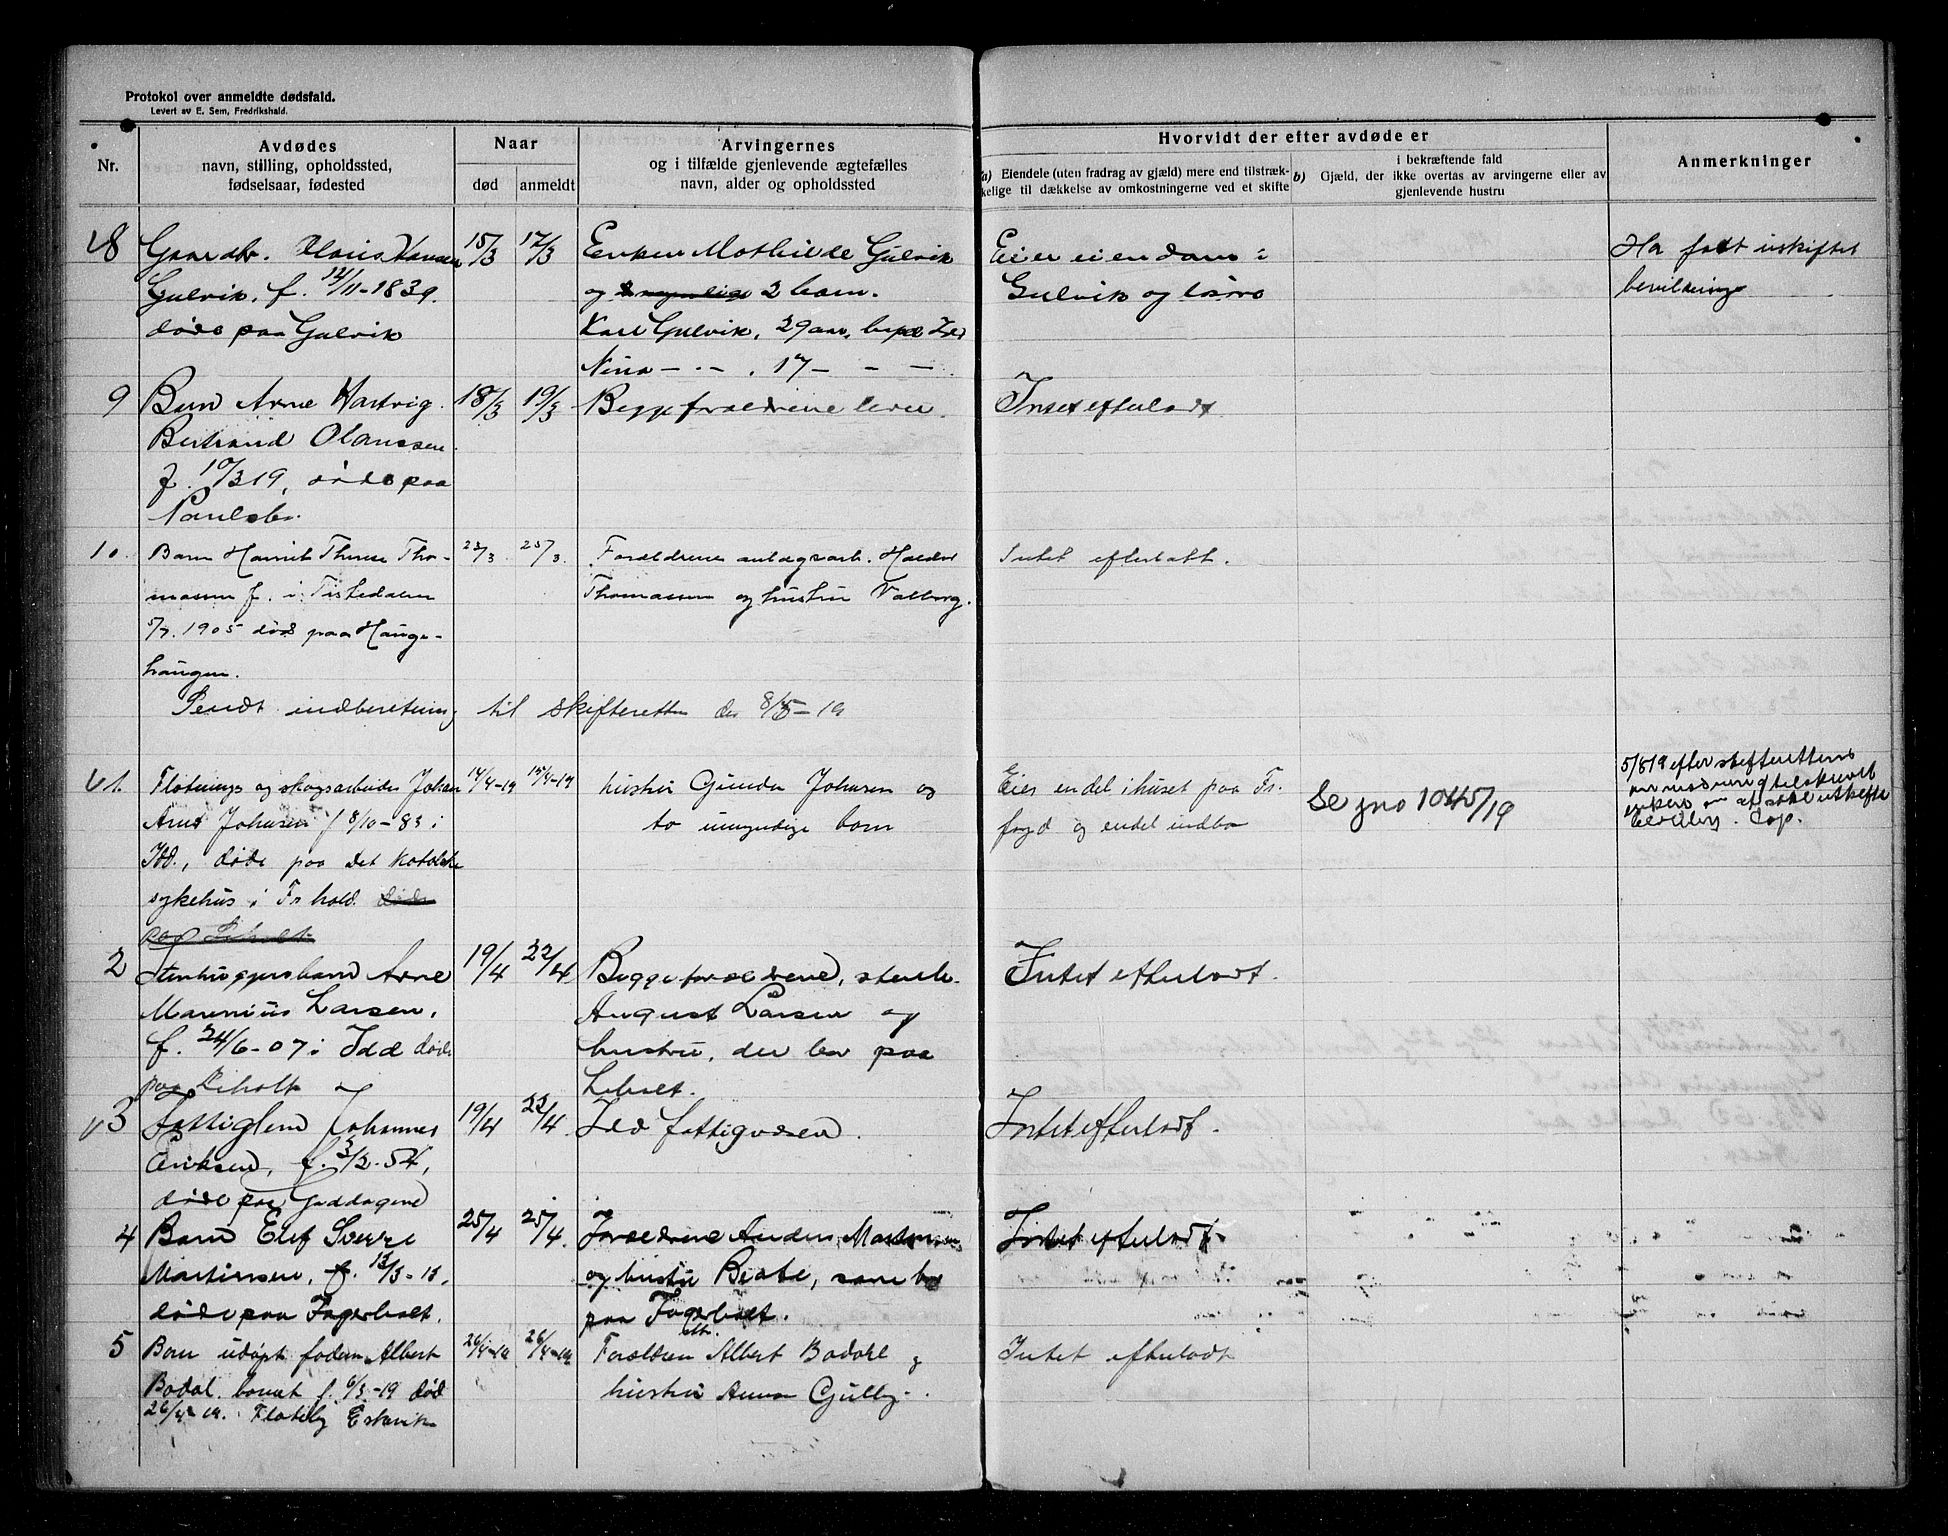 Protokol over anmeldte dødsfald.
Levert av E. Sem, Fredrikshald.
Nr.
Avdødes
navn, stilling, opholdssted,
fødselsaar, fødested
Naar
død
anmeldt
Arvingernes
og i tilfælde gjenlevende ægtefælles
navn, alder og opholdssted
Hvorvidt der efter avdøde er
a) Eiendele (uten fradrag av gjæld) mere end tilstræk-
kelige til dækkelse av omkostningerne ved et skifte
b)
i bekræftende fald
Gjæld, der ikke overtas av arvingerne eller av
gjenlevende hustru
Anmerkninger
8
Gaardbr. Hansen
Gulvik, f. 12/11-1839.
døde paa Gulvik
15/3
17/3
Enken Mathilde Gulvik
og 2 barn.
Karl Gulvik, 29 aar,
Nina - - - . 17 - - -
Eier eiendom i
Gulvik og løsøre
Har fått uskiftet
bevilling
9
Barn Arne Hartvig
Bertrand Olaussen
f. 10/3 19, døde paa
Paulsbo.
18/3
19/3
Begge forældrene lever.
Intet efterladt
10.
Barn Harriet Therese Tho-
massen f. i Tistedalen
5/7. 1905 død paa Hauge-
haugen.
23/3
25/3.
Forældrene anlægsarb. Haldor
Thomassen og hustru Valborg.
Intet efterlatt.
Sendt indberetning til skifteretten den 8/5-19
1.
Fløtnings og skogsarbeider Johan
Arnt Johansen f 8/10-83 i
Idd., døde paa det katolske
sykehus i Fr hald. døde
paa Liholt
14/4-19
15/4-19
hustru Gunda Johansen og
to umyndige barn
Eier endel i huset paa Fr.
og endel indbo
Se jno 1045/19
5/8 19 efter skifterettens
anmodning tilskrevet
enken om at søke uskifte
bevilling. Cop.
2
Stenhuggersbarn Arne
Marenius Larsen,
f. 24/6-07 i Idd døde
paa Liholt
19/4
22/4
Begge forældrene, stenh.
August Larsen og
hustru, der bor paa
Liholt.
Intet efterladt.
3
Fattiglem Johannes
Eriksen, f. 3/2-54,
døde paa Gaddagene
19/4
22/4
Idd fattigvæsen.
Intet efterladt.
4
Barn Elef Sverre
Martinsen, f. 13/3-15,
døde paa Fagerholt.
25/4
25/4.
Forældrene Anders Martinsen
og hustru Beate, som bor
paa Fagerholt.
Intet efterladt.
5
Barn udøpt faderen Albert
Bodal. barnet f. 6/3-19 død
26/4 19. Eskevik
26/4-19
26/4-19
Forældren Albert Bodahl og
hustru Anna Gulby.
Intet efterladt